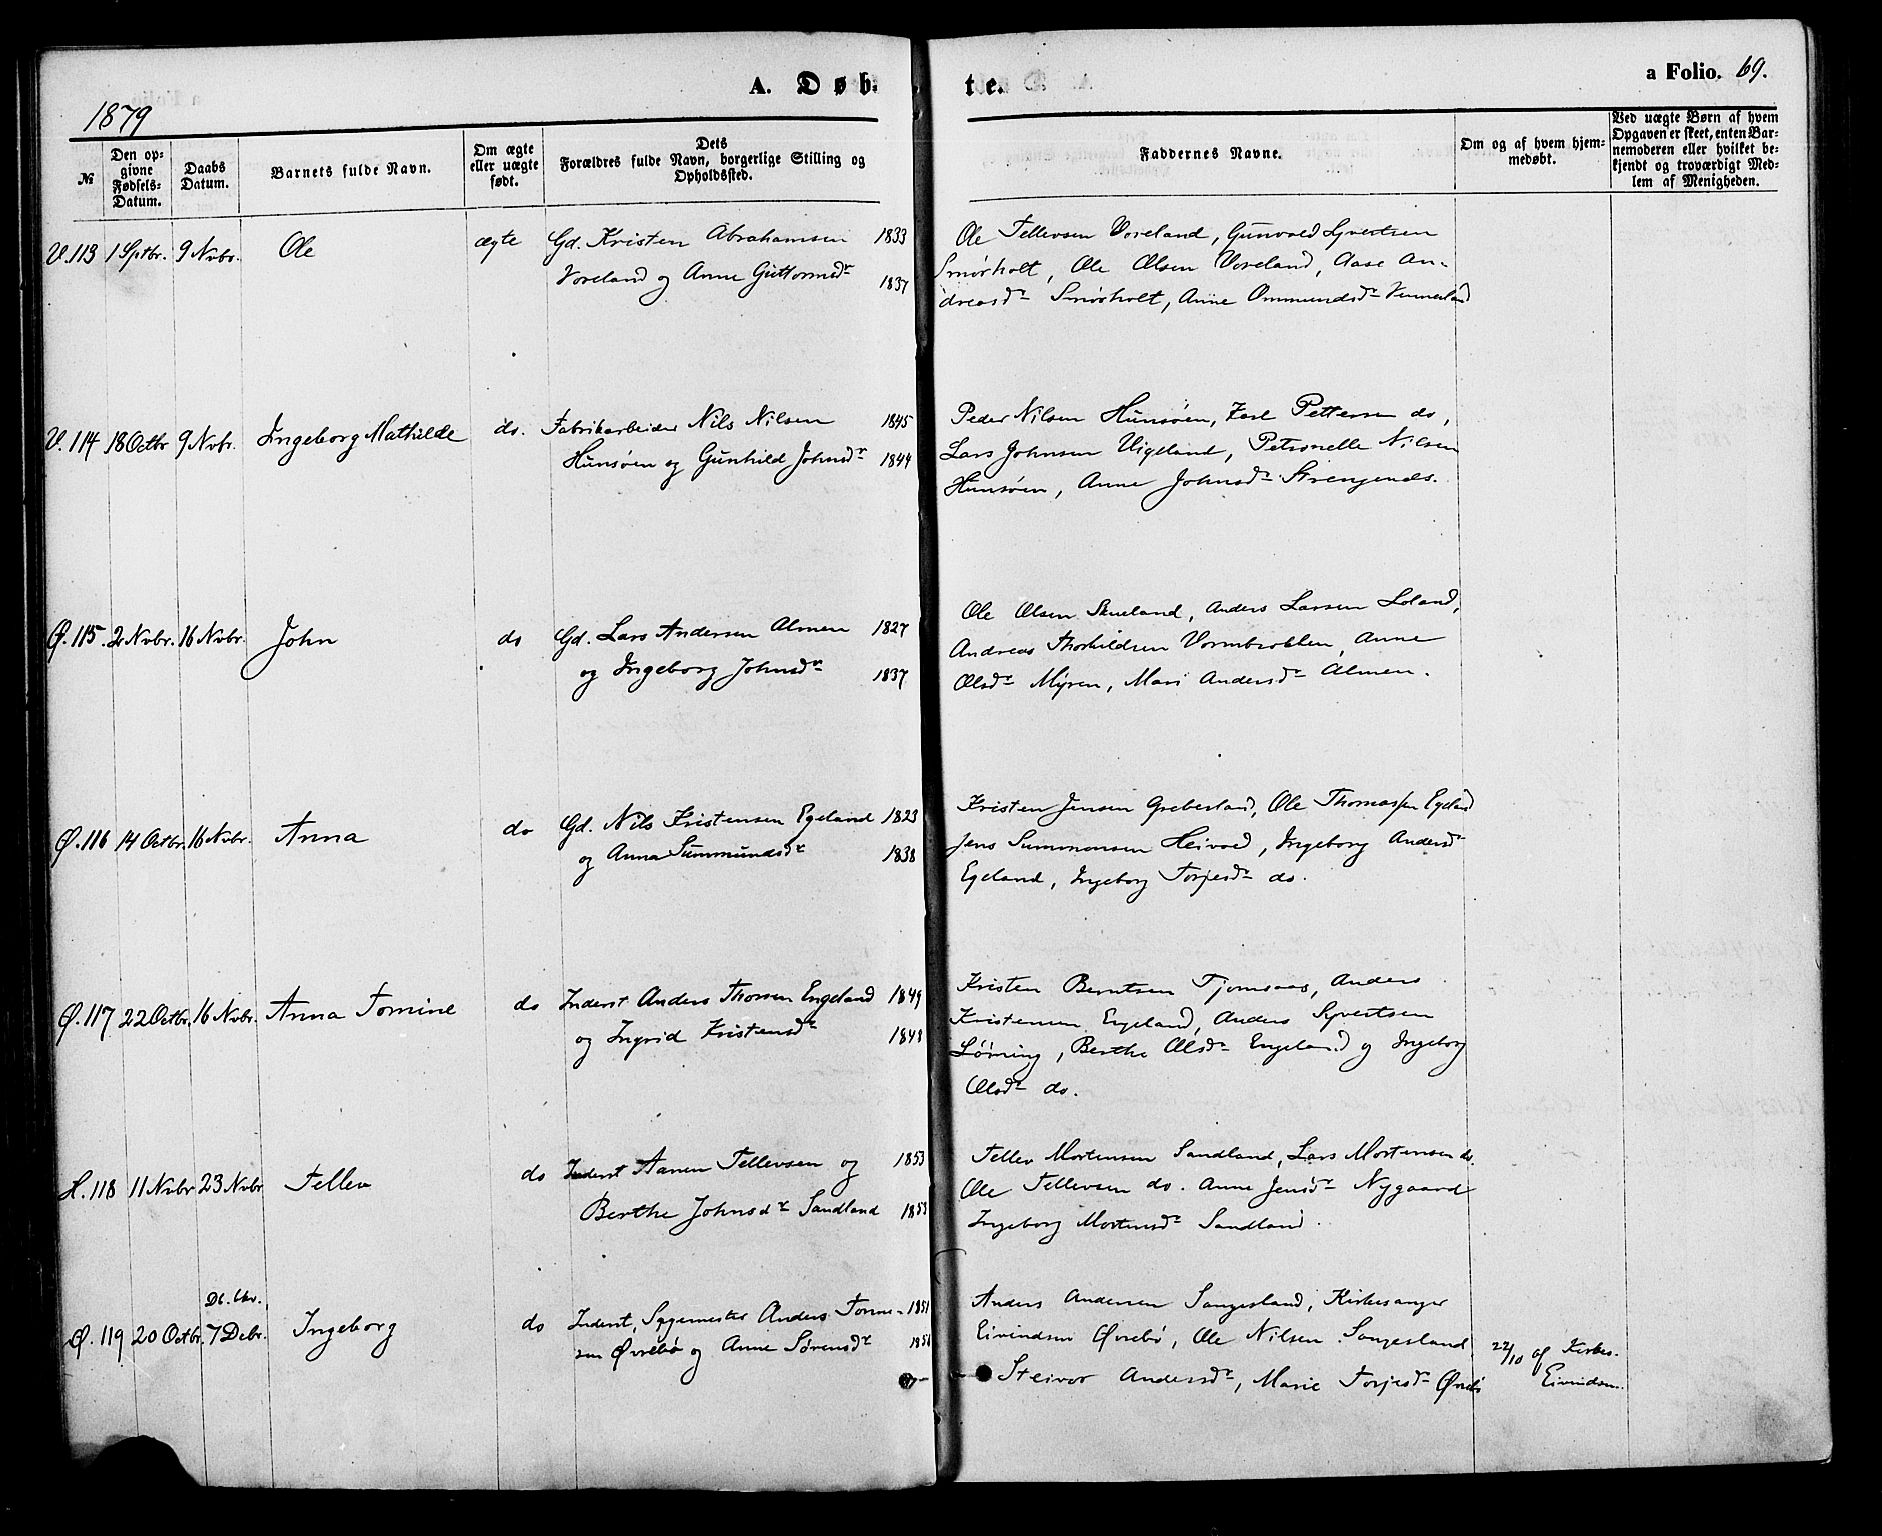 1879
A. Døb-
te.
a Folio. 69.
№
Den op-
givne
Fødsels-
Datum.
Daabs
Datum.
Barnets fulde Navn.
Om ægte
eller uægte
født.
Dets
Forældres fulde Navn, borgerlige Stilling og
Opholdssted.
Faddernes Navne.
Om og af hvem hjem-
medøbt.
Ved uægte Børn af hvem
Opgaven er skeet, enten Bar-
nemoderen eller hvilket be-
kjendt og troværdigt Med-
lem af Menigheden.
V. 113 1 Sptbr. 9 Nvbr. Ole ægte Gd. Kristen Abrahamsen 1833
Voreland og Anne Guttormsdr 1837
Ole Tellevsen Voreland, Gunvald Syvertsen
Smørholt, Ole Olsen Voreland, Aase An-
dreasdr Smørholt, Anne Ommundsdr Vennesland
V. 114 18 Octbr 9 Nvbr. Ingeborg Mathilde do. Fabrikarbeider Nils Nilsen 1845
Hunsøen og Gunhild Johnsdr 1844
Peder Nilsen Hunsøen, Karl Pettersen do,
Lars Johnsen Vigeland, Petronelle Nilsen
Hunsøen, Anne Johnsdr Strengenæs.
Ø. 115. 2 Nvbr. 16 Nvbr. John do Gd. Lars Andersen Almen 1827
og Ingeborg Johnsdr 1837
Ole Olsen Skueland, Anders Larsen Loland,
Andreas Thorkildsen Vormbrokken, Anne
Olsdr Myren, Mari Andersdr Almen.
Ø. 116 14 Octbr. 16 Nvbr. Anna do Gd. Nils Kristensen Egeland 1823
og Anna Summundsdr 1838
Kristen Jensen Greberland, Ole Thomassen Egeland
Jens Summonsen Heivold, Ingeborg Andersdr
Egeland, Ingeborg Torjesdr do.
Ø. 117 22 Octbr. 16 Nvbr. Anna Tomine do Inderst Anders Thorsen Engeland 1849
og Ingrid Kristensdr 1848
Kristen Berntsen Tjomsaas, Anders
Kristensen Engeland, Anders Syvertsen
Løining, Berthe Olsdr Engeland og Ingeborg
Olsdr do.
H. 118 11 Nvbr 23 Nvbr Tellev do Inderst Aanen Tellevsen og 1853
Berthe Johnsdr Sandland 1853
Tellev Mortensen Sandland, Lars Mortensen do.
Ole Tellevsen do. Anne Jensdr Nygaard
Ingeborg Mortensdr Sandland.
Ø. 119 20 Octbr. 7 Debr. Ingeborg do Inderst, Sygemester Anders Tomme- 1851
sen Øvrebø og Anne Sørensdr
Anders Andersen Sangesland, Kirkesanger
Eivindsen Øvrebø, Ole Nilsen Sangesland
Steivor Andersdr, Marie Torjesdr Øvrebø
22/10 af Kirkes.
Eivindsen.